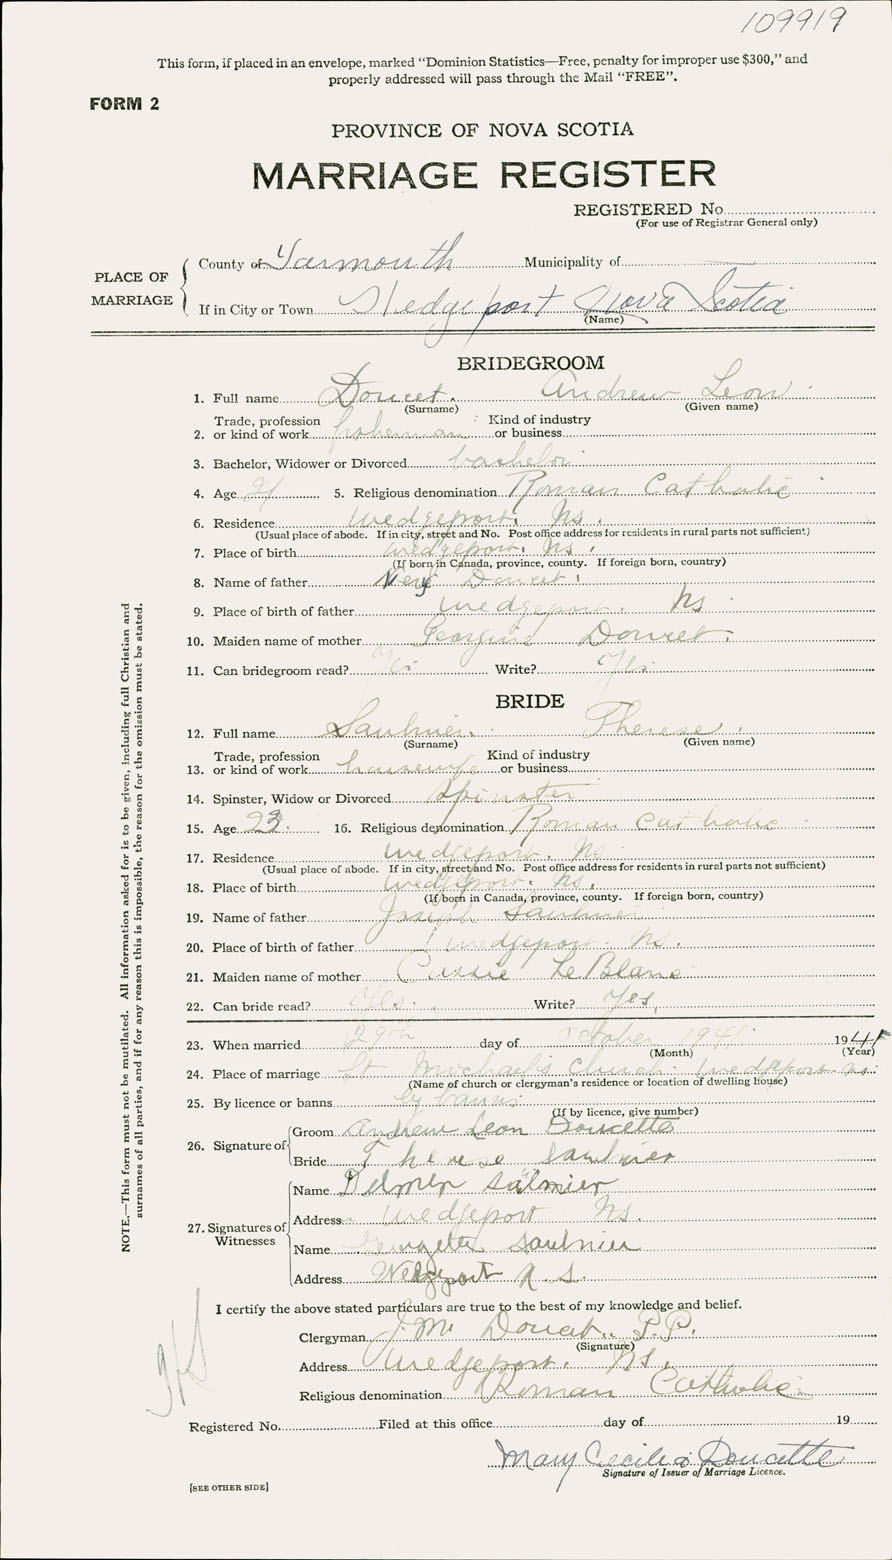 109919
This form, if placed in an envelope, marked “Dominion Statistics—Free, penalty for improper use $300,” and
properly addressed will pass through the Mail “FREE”.
FORM 2
PROVINCE OF NOVA SCOTIA
MARRIAGE REGISTER
REGISTERED No.
(For use of Registrar General only)
PLACE OF MARRIAGE
County of Yarmouth Municipality of
If in City or Town Wedgeport Nova Scotia
(Name)
BRIDEGROOM
1. Full name Doucet. Andrew Leon
(Surname) (Given name)
2. Trade, profession or kind of work fisherman Kind of industry or business
3. Bachelor, Widower or Divorced bachelor
4. Age 21 5. Religious denomination Roman Catholic
6. Residence Wedgeport, Ns.
(Usual place of abode. If in city, street and No. Post office address for residents in rural parts not sufficient)
7. Place of birth Wedgeport, Ns.
(If born in Canada, province, county. If foreign born, country)
8. Name of father Doucet
9. Place of birth of father Wedgeport. Ns
10. Maiden name of mother Georgine Doucet.
11. Can bridegroom read? Yes Write? Yes
BRIDE
12. Full name Saulnier. Therese.
(Surname) (Given name)
13. Trade, profession or kind of work housewife Kind of industry or business
14. Spinster, Widow or Divorced Spinster
15. Age 23. 16. Religious denomination Roman Catholic
17. Residence Wedgeport, Ns
(Usual place of abode. If in city, street and No. Post office address for residents in rural parts not sufficient)
18. Place of birth Wedgeport. Ns.
(If born in Canada, province, county. If foreign born, country)
19. Name of father Joseph Saulnier
20. Place of birth of father Wedgeport. Ns.
21. Maiden name of mother LeBlanc
22. Can bride read? Yes. Write? Yes,
23. When married 29th day of October 1941 1941
(Month) (Year)
24. Place of marriage St Michael's Church. Wedgeport. Ns.
(Name of church or clergyman’s residence or location of dwelling house)
25. By licence or banns by banns
(If by licence, give number)
26. Signature of
Groom Andrew Leon Doucette
Bride Therese Saulnier
27. Signatures of Witnesses
Name Delmer Sulmier
Address Wedgeport Ns.
Name Georgette Saulnier
Address Wedgeport N.S.
I certify the above stated particulars are true to the best of my knowledge and belief.
Clergyman J. M. Doucet.. P.P.
(Signature)
Address Wedgeport. Ns.
Religious denomination Roman Catholic
Registered No. Filed at this office day of 19
Mary Cecilia Doucette
Signature of Issuer of Marriage Licence.
[SEE OTHER SIDE]
NOTE.—This form must not be mutilated. All information asked for is to be given, including full Christian and
surnames of all parties, and if for any reason this is impossible, the reason for the omission must be stated.